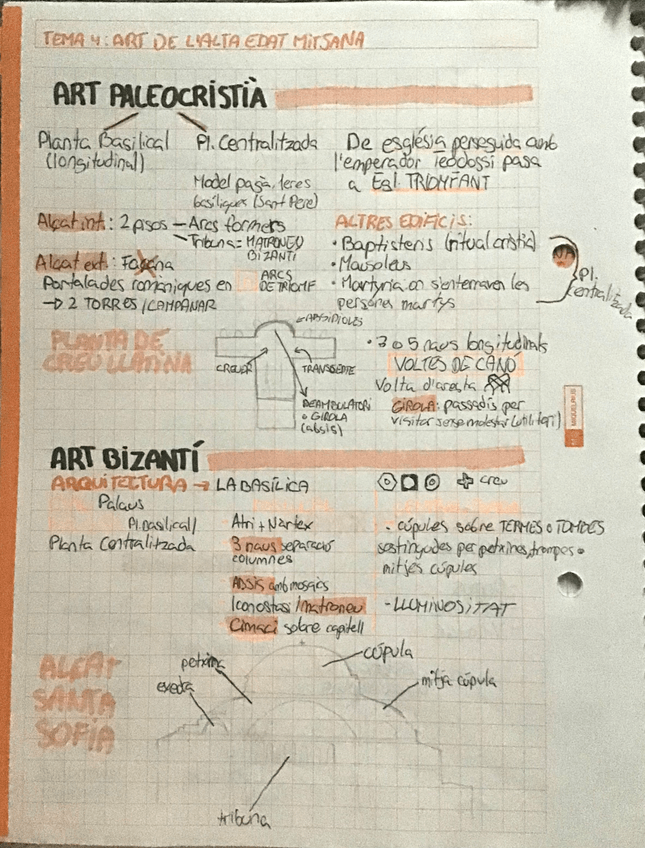 TEMA 4: ART DE L'ALTA EDAT MITJANA
ART PALEOCRISTIÀ
Planta Basilical
(longitudinal)
Pl. Centralitzada
Model pagà, leres
basíliques (Sant Pere)
De església perseguida amb
l'emperador Teodossi passa
a Esgl. TRIOMFANT
Alçat int: 2 pisos — Arcs formers
Tribuna = MATRONEU
BIZANTÍ
Alçat ext: Façana
ARCS
DE TRIOMF
Portalades romàniques en
→ 2 TORRES/CAMPANAR
ALTRES EDIFICIS:
• Baptisteris (ritual cristià)
• Mausoleus
• Martyria on s'enterraven les
persones martys
Pl.
Centralitzada
PLANTA DE
CREU LLATINA
ABSIDIOLES
CREUER
TRANSEPTE
DEAMBULATORI
o GIROLA
(absis)
• 3 o 5 naus longitudinals
VOLTES DE CANÓ
Volta d'aresta
GIROLA: passadís per
visitar sense molestar (utilitari)
MIQUELRIUS
ART BIZANTÍ
ARQUITECTURA → LA BASÍLICA
Palaus
Pl. Basilical/
Planta Centralitzada
Atri + Nàrtex
3 naus separació
columnes
Absis amb mosaics
Iconostas/matroneu
Cimaci sobre capitell
creu
- cúpules sobre TERMES o TOMBES
sostingudes per petxines, trompes o
mitjes cúpules
- LLUMINOSITAT
ALÇAT
SANTA
SOFIA
petxina
exedra
cúpula
mitja cúpula
tribuna